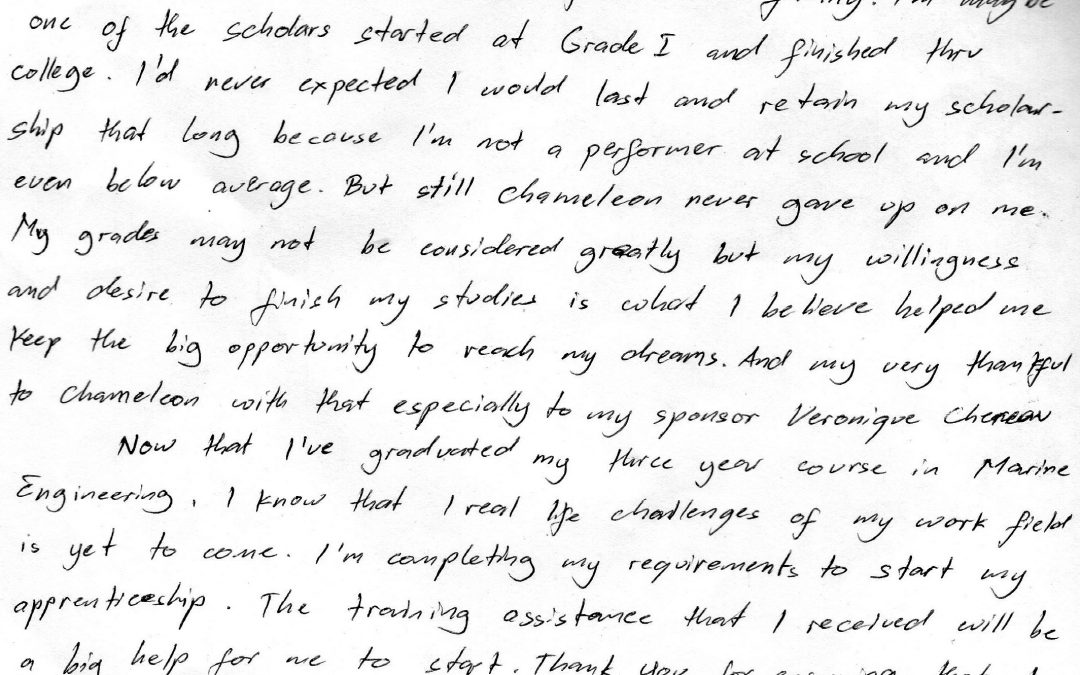 I'm maybe
one of the scholars started at Grade I and finished thru
college. I'd never expected I would last and retain my scholar-
ship that long because I'm not a performer at school and I'm
even below average. But still chameleon never gave up on me.
My grades may not be considered greatly but my willingness
and desire to finish my studies is what I believe helped me
keep the big opportunity to reach my dreams. And my very thankful
to chameleon with that especially to my sponsor Veronique Chereau
Now that I've graduated my three year course in Marine
Engineering, I know that I real life challenges of my work field
is yet to come. I'm completing my requirements to start my
apprenticeship. The training assistance that I received will be
a big help for me to start. Thank you for